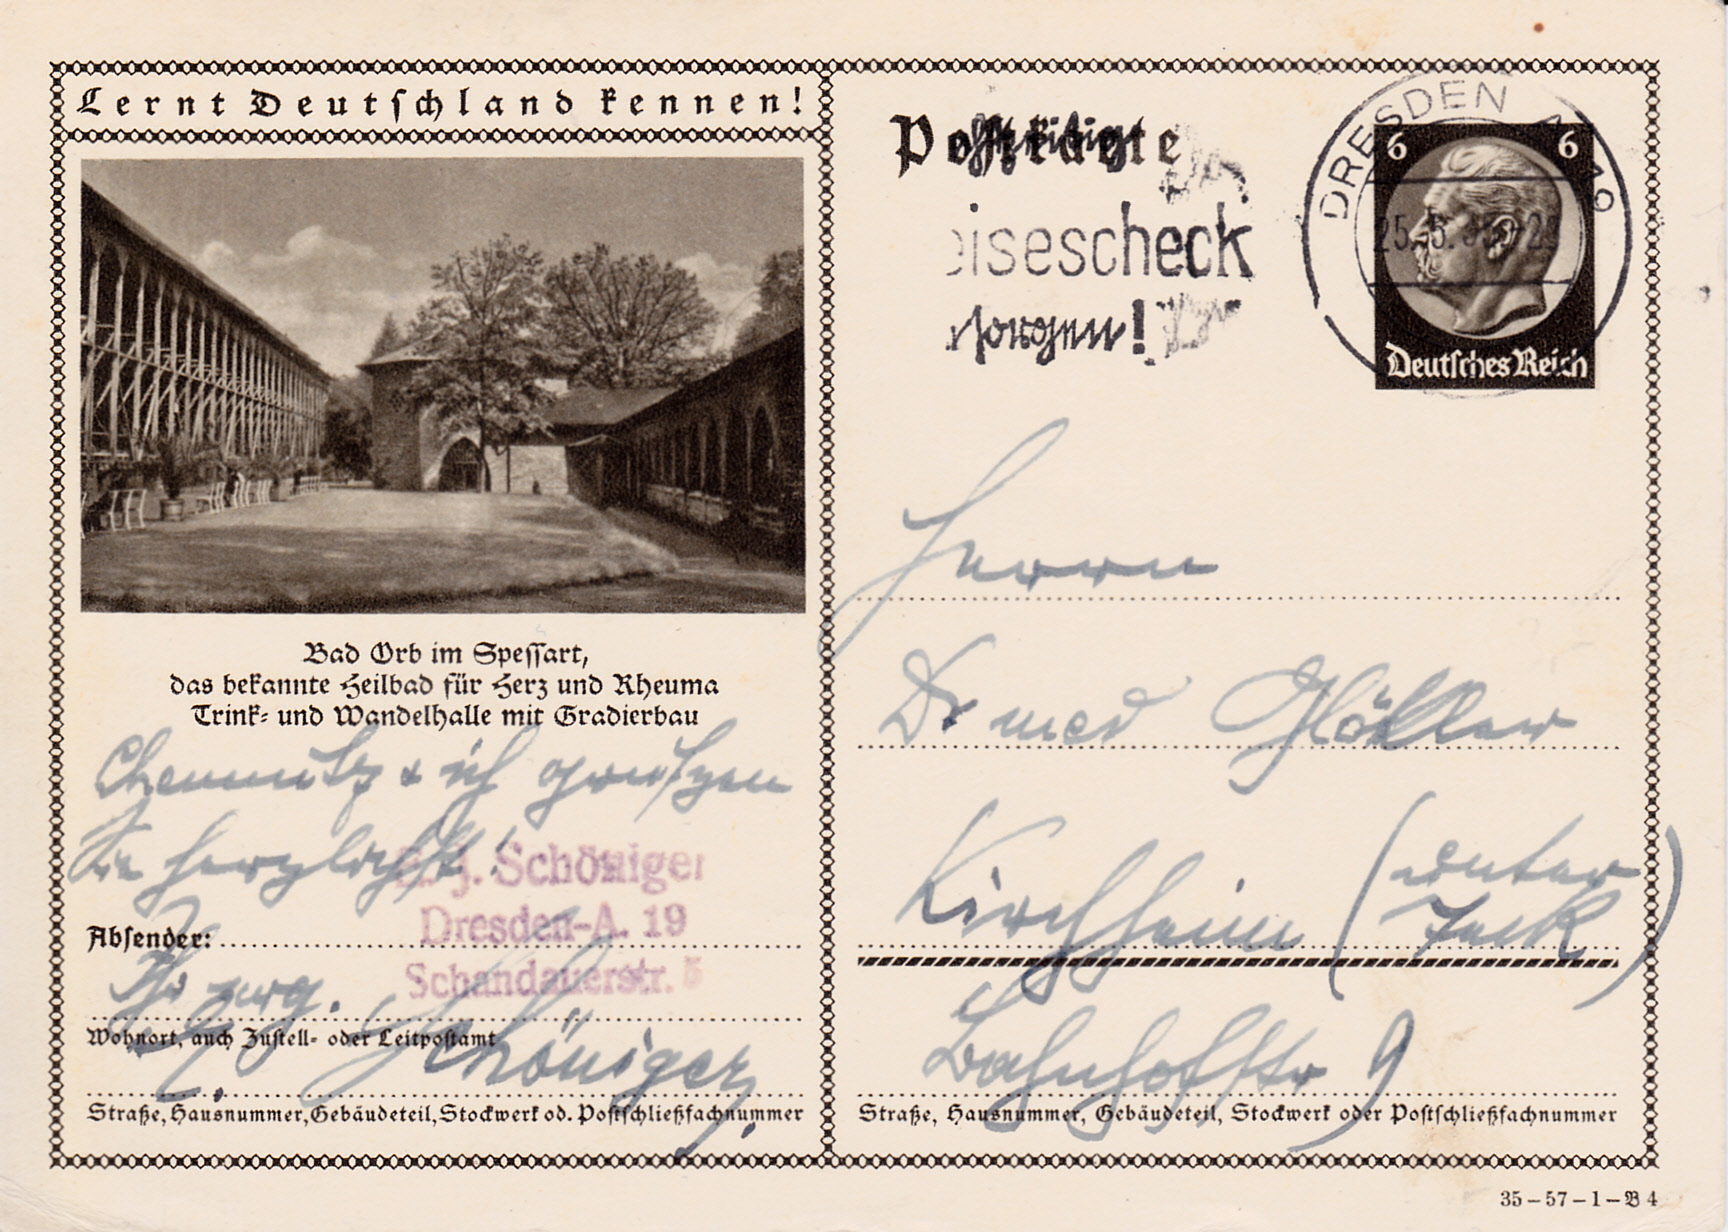 Lernt Deutschland kennen!
Bad Orb im Spessart,
das bekannte Heilbad für Herz und Rheuma
Trink- und Wandelhalle mit Gradierbau
Chemnitz & ich grüßen
Sie herzlichst!
Schöniger
Dresden-A. 19
Schandauerstr. 5
Absender:
Ihr
Schöniger
Wohnort, auch Zustell- oder Leitpostamt
Straße, Hausnummer, Gebäudeteil, Stockwerk od. Postschließfachnummer
Postkarte
eisescheck
sorgen!
DRESDEN
6 6
Deutsches Reich
Herrn
Dr med
Kirchheim (unter
Teck)
Bahnhofstr 9
Straße, Hausnummer, Gebäudeteil, Stockwerk oder Postschließfachnummer
35-57-1-B 4